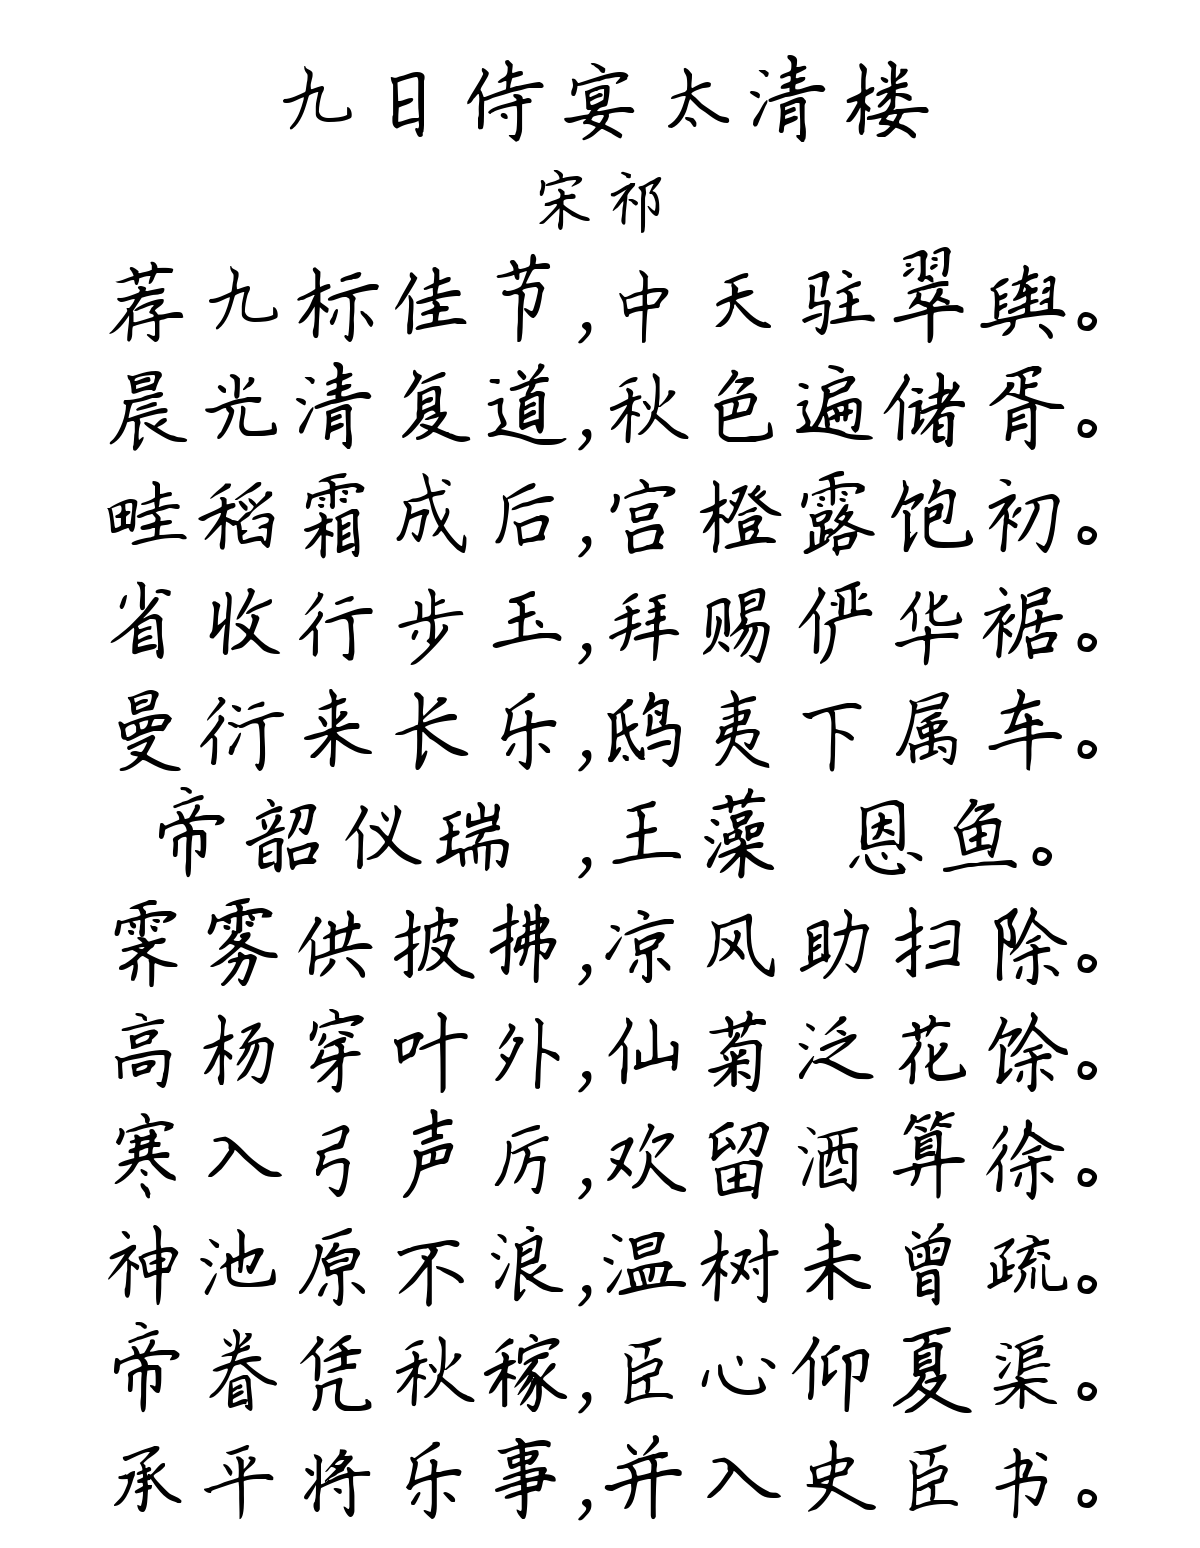 九日侍宴太清楼
宋祁
荐九标佳节,中天驻翠舆。
晨光清复道,秋色遍储胥。
畦稻霜成后,宫橙露饱初。
省收行步玉,拜赐俨华裾。
曼衍来长乐,鸱夷下属车。
帝韶仪瑞 ,王藻 恩鱼。
霁雾供披拂,凉风助扫除。
高杨穿叶外,仙菊泛花馀。
寒入弓声厉,欢留酒算徐。
神池原不浪,温树未曾疏。
帝眷凭秋稼,臣心仰夏渠。
承平将乐事,并入史臣书。